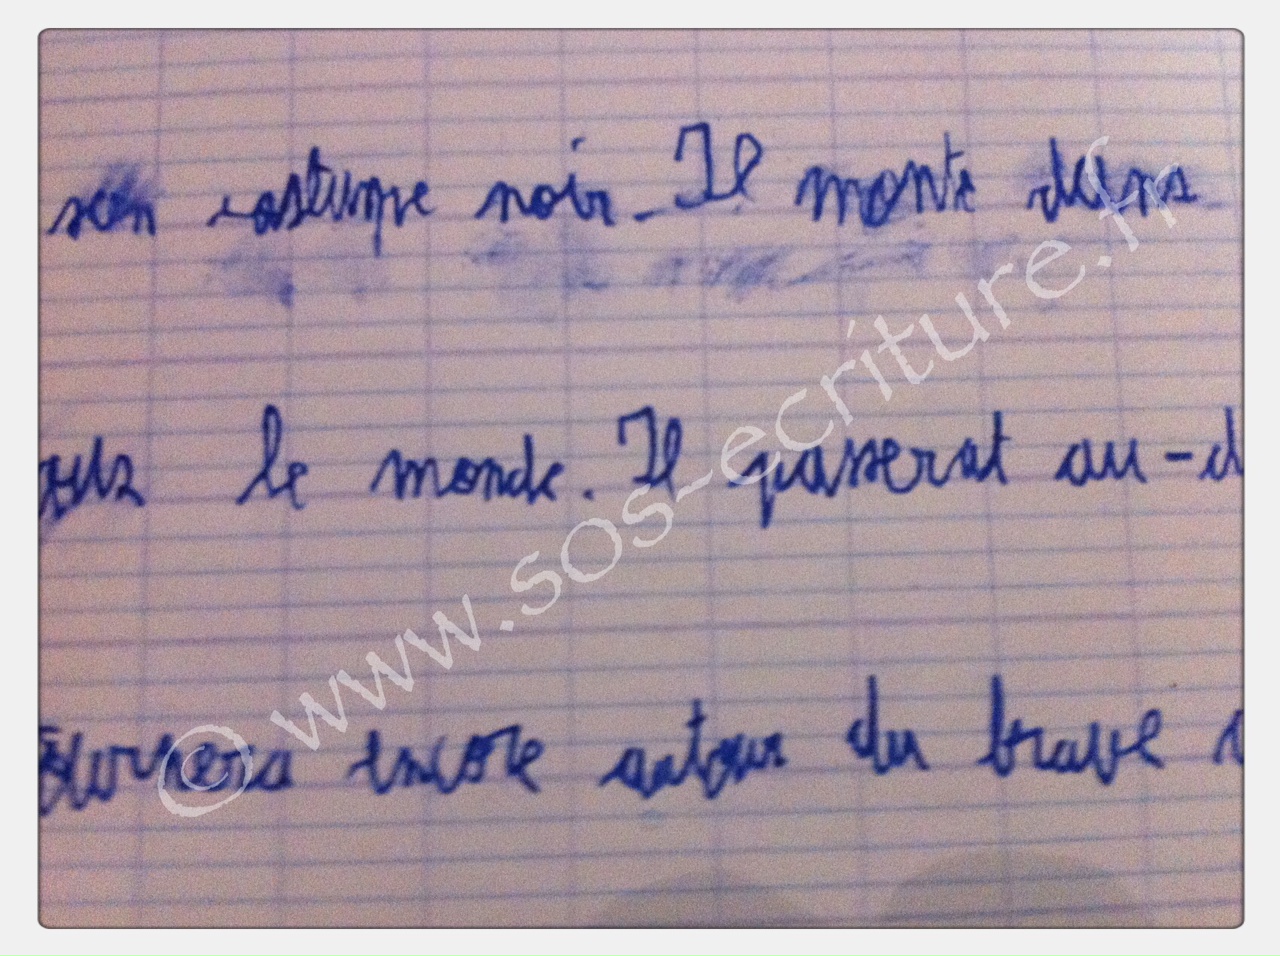 son costume noir. Il monte dans
le monde. Il passerat au-d
encore autour du brave
© www.sos-ecriture.fr